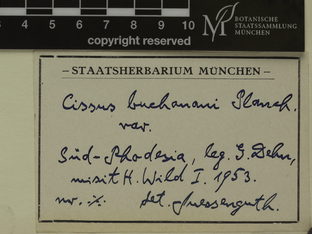 4 5 6 7 8 9 10
copyright reserved
BOTANISCHE
STAATSSAMMLUNG
MÜNCHEN
– STAATSHERBARIUM MÜNCHEN –
Cissus buchanani Planch.
var.
Süd-Rhodesia, leg. G. Dehn,
misit H. Wild I. 1953.
nr. det. Suessenguth.